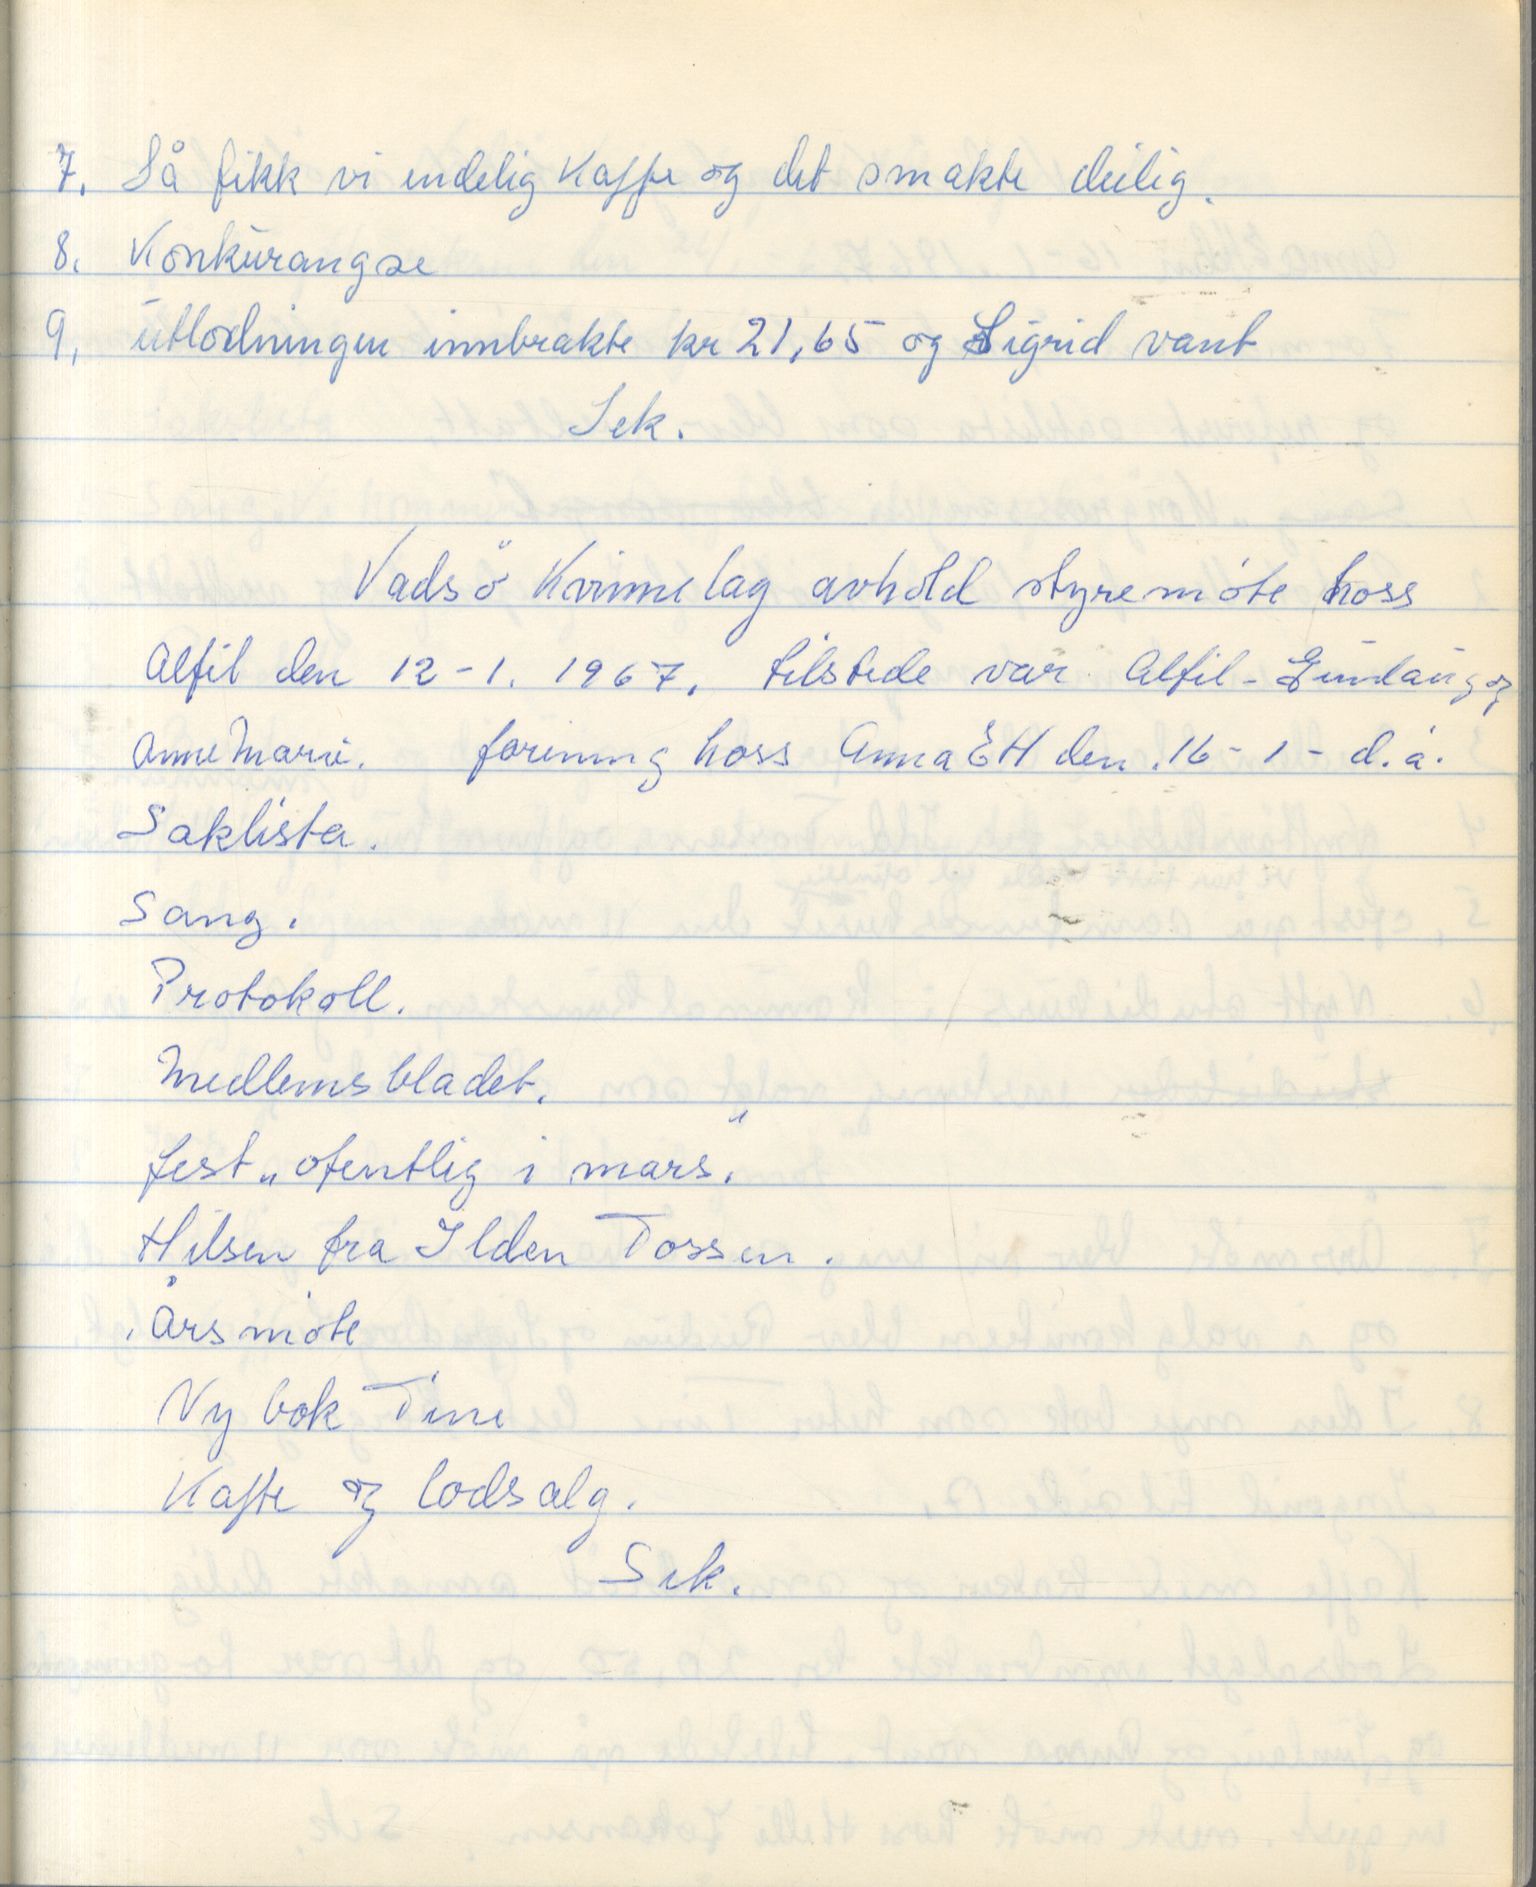 7. Så fikk vi endelig Kaffe og det smakte deilig.
8. Konkurangse
9. utlodningen innbrakte kr 21,65 og Sigrid vant
Sek.
Vadsö Kvinnelag avhold styremöte hoss
Alfil den 12-1. 1967. tilstede var Alfil - Gunlaug og
Anne Marie. forening hoss Anna E H den. 16 - 1 - d.å.
Saklista.
Sang.
Protokoll.
Medlemsbladet.
fest „ofentlig i mars."
Hilsen fra Ilden Tossen.
Årsmöte
Ny bok Tine
Kaffe og lodsalg.
Sek.